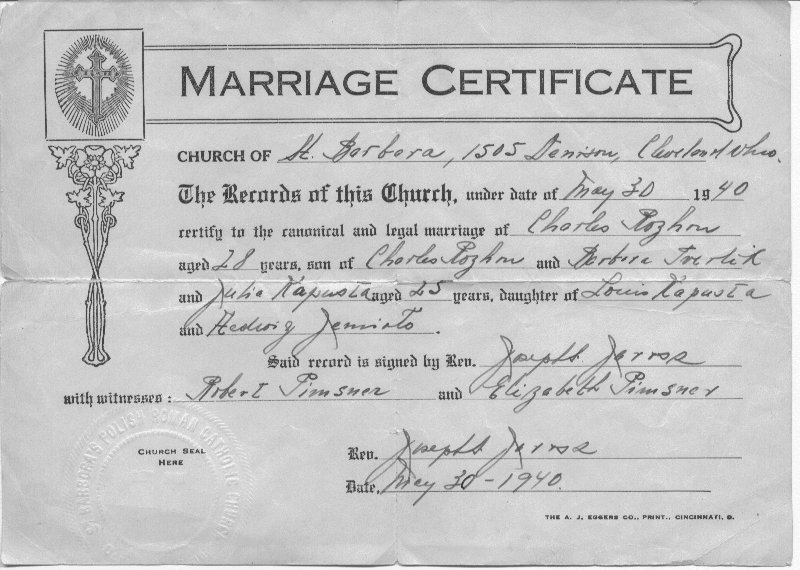 MARRIAGE CERTIFICATE
CHURCH OF St. Barbara, 1505 Denison, Cleveland Ohio.
The Records of this Church, under date of May 30 1940
certify to the canonical and legal marriage of Charles Rozhon
aged 28 years, son of Charles Rozhon and Barbara
and Julia Kapusta aged 25 years, daughter of Louis Kapusta
and Hedwig
Said record is signed by Rev. Joseph
with witnesses: Robert Pimsner and Elizabeth Pimsner
CHURCH SEAL
HERE
BARBARA'S POLISH ROMAN CATHOLIC CHURCH
Rev. Joseph
Date, May 30-1940.
THE A. J. EGGERS CO., PRINT., CINCINNATI, O.